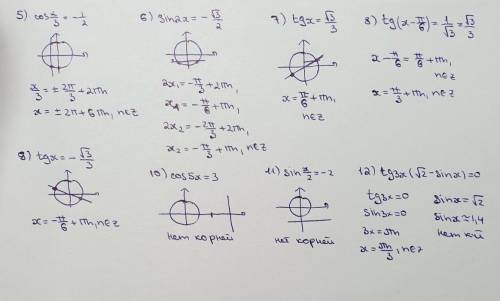 5) cos x/3 = -1/2
x/3 = ± 2π/3 + 2πn
x = ± 2π + 6πn, n∈Z
6) sin2x = -√3/2
2x₁ = -π/3 + 2πn,
x₁ = -π/6 + πn,
2x₂ = -2π/3 + 2πn,
x₂ = -π/3 + πn, n∈Z
7) tgx = √3/3
x = π/6 + πn,
n∈Z
8) tg(x - π/6) = 1/√3 = √3/3
x - π/6 = π/6 + πn,
n∈Z
x = π/3 + πn,
n∈Z
9) tgx = -√3/3
x = -π/6 + πn, n∈Z
10) cos5x = 3
нет корней
11) sin x/2 = -2
нет корней
12) tg3x(√2 - sinx) = 0
tg3x = 0 sinx = √2
sin3x = 0 sinx ≈ 1,4
3x = πn нет кой
x = πn/3, n∈Z